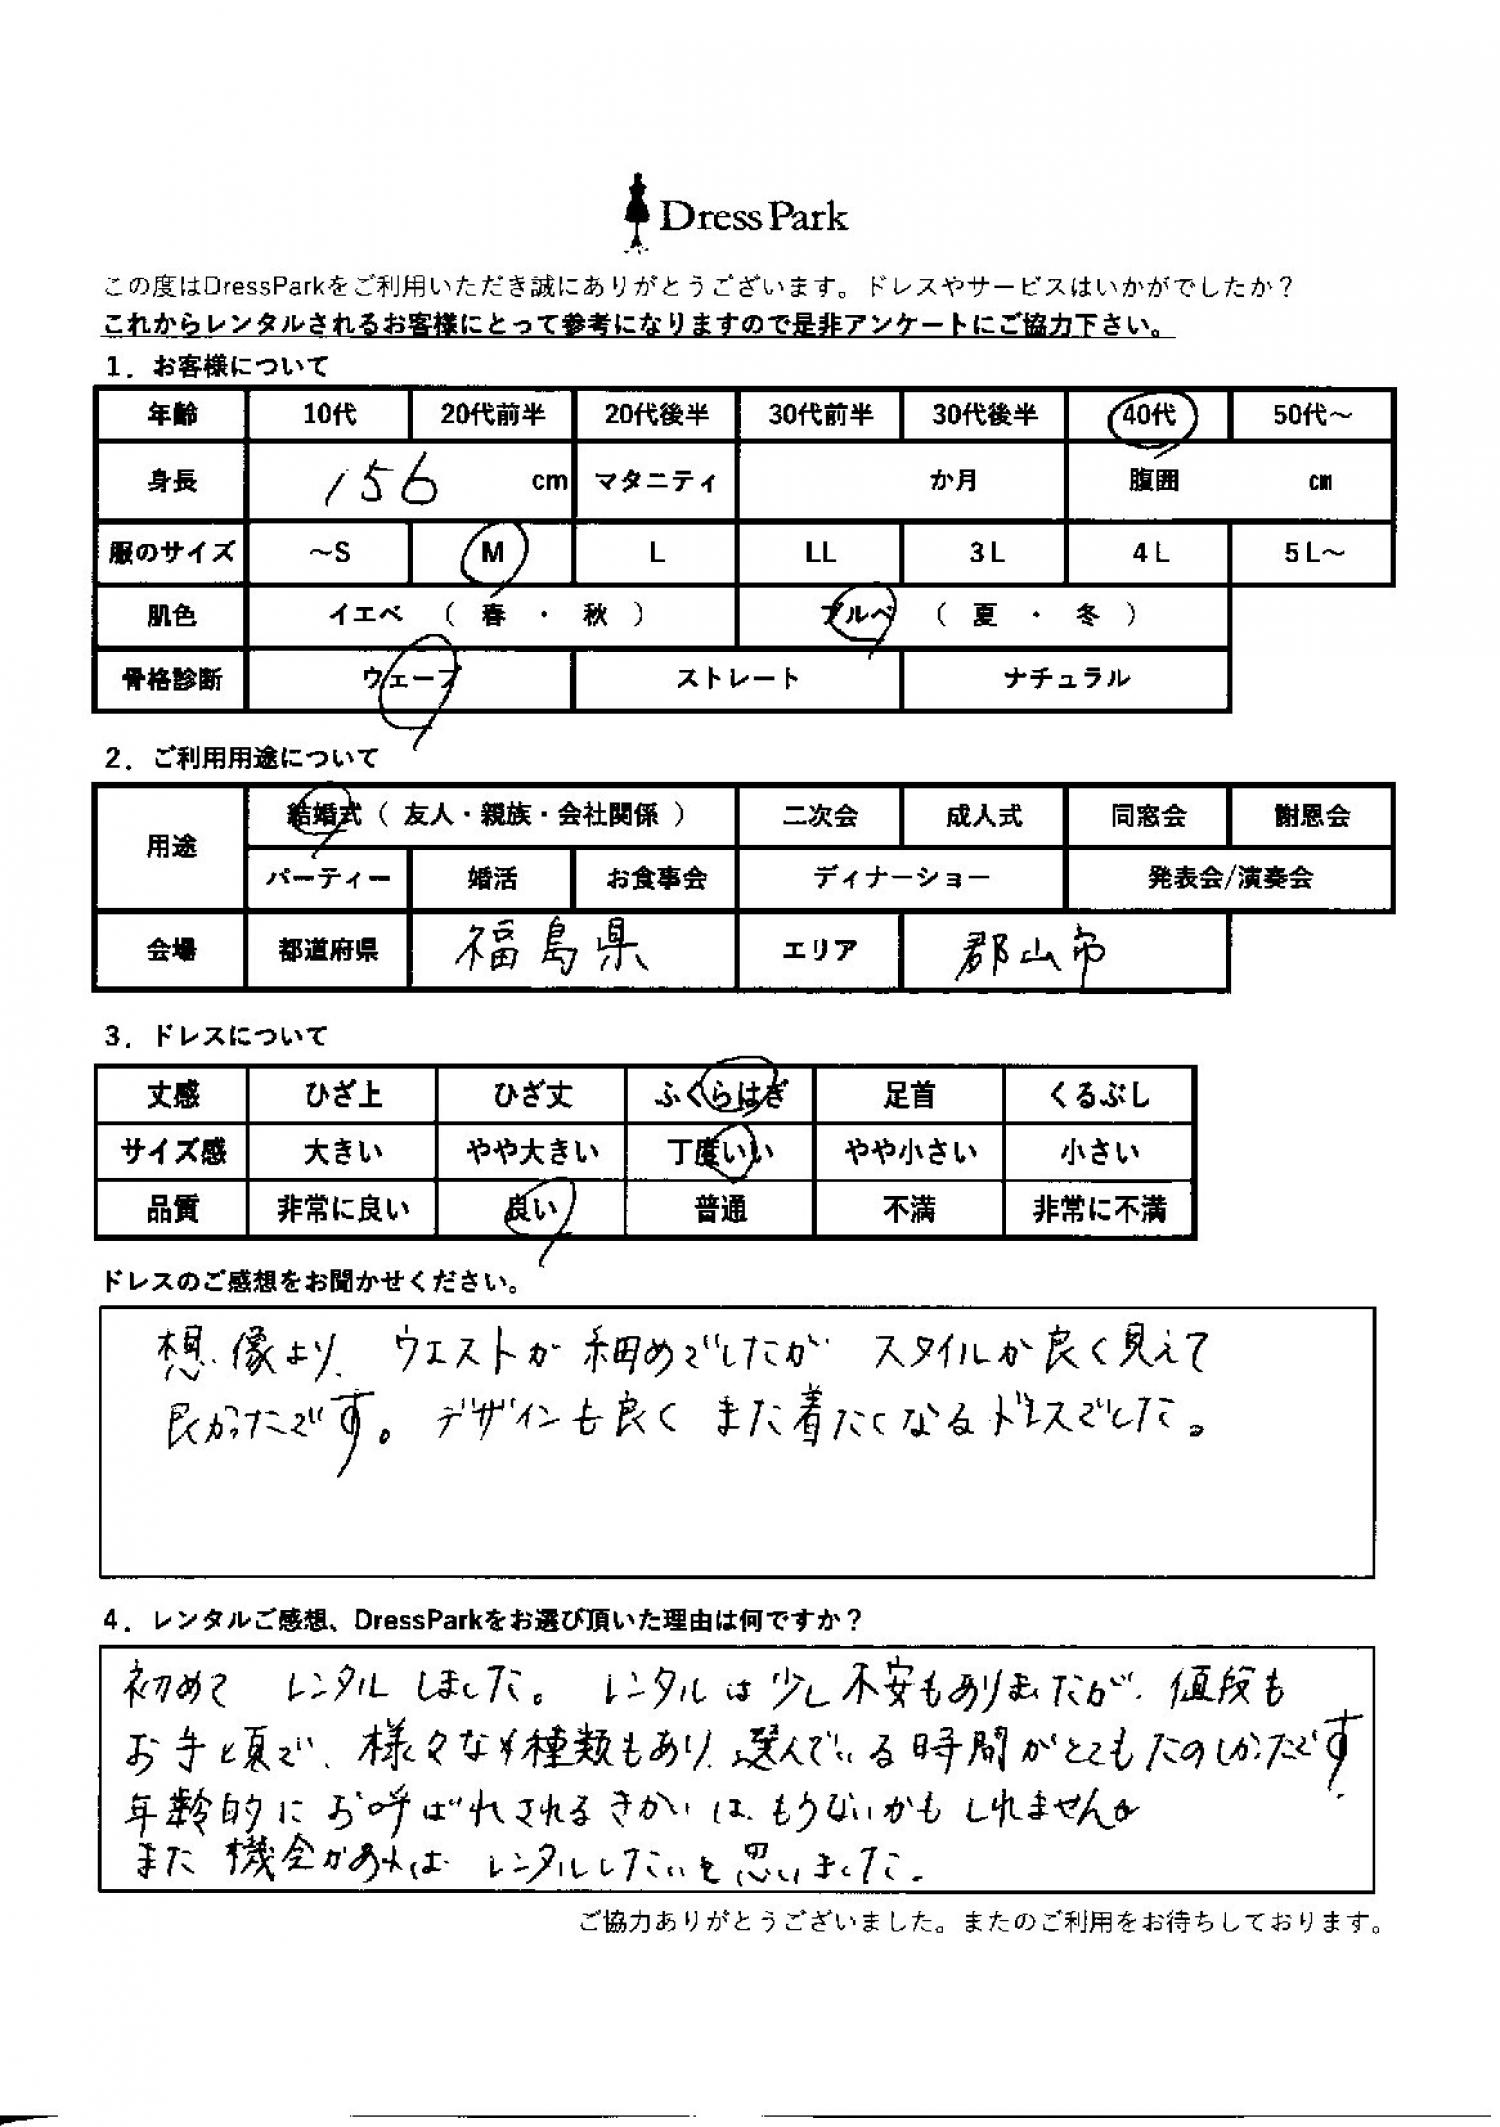 Dress Park
この度はDressParkをご利用いただき誠にありがとうございます。ドレスやサービスはいかがでしたか？
これからレンタルされるお客様にとって参考になりますので是非アンケートにご協力下さい。
1．お客様について
年齢 10代 20代前半 20代後半 30代前半 30代後半 40代 50代～
身長 156 cm マタニティ か月 腹囲 cm
服のサイズ ～S M L LL 3L 4L 5L～
肌色 イエベ （ 春 ・ 秋 ） ブルベ （ 夏 ・ 冬 ）
骨格診断 ウェーブ ストレート ナチュラル
2．ご利用用途について
用途 結婚式（ 友人・親族・会社関係 ） 二次会 成人式 同窓会 謝恩会
パーティー 婚活 お食事会 ディナーショー 発表会/演奏会
会場 都道府県 福島県 エリア 郡山市
3．ドレスについて
丈感 ひざ上 ひざ丈 ふくらはぎ 足首 くるぶし
サイズ感 大きい やや大きい 丁度いい やや小さい 小さい
品質 非常に良い 良い 普通 不満 非常に不満
ドレスのご感想をお聞かせください。
想像より、ウエストが細めでしたが スタイルが良く見えて
良かったです。デザインも良く また着たくなるドレスでした。
4．レンタルご感想、DressParkをお選び頂いた理由は何ですか？
初めて レンタルしました。 レンタルは少し不安もありましたが、値段も
お手頃で、様々な種類もあり、選んでいる時間がとてもたのしかったです
年齢的に お呼ばれされるきかいは、もうないかもしれませんが
また 機会があれば レンタルしたいと思いました。
ご協力ありがとうございました。またのご利用をお待ちしております。